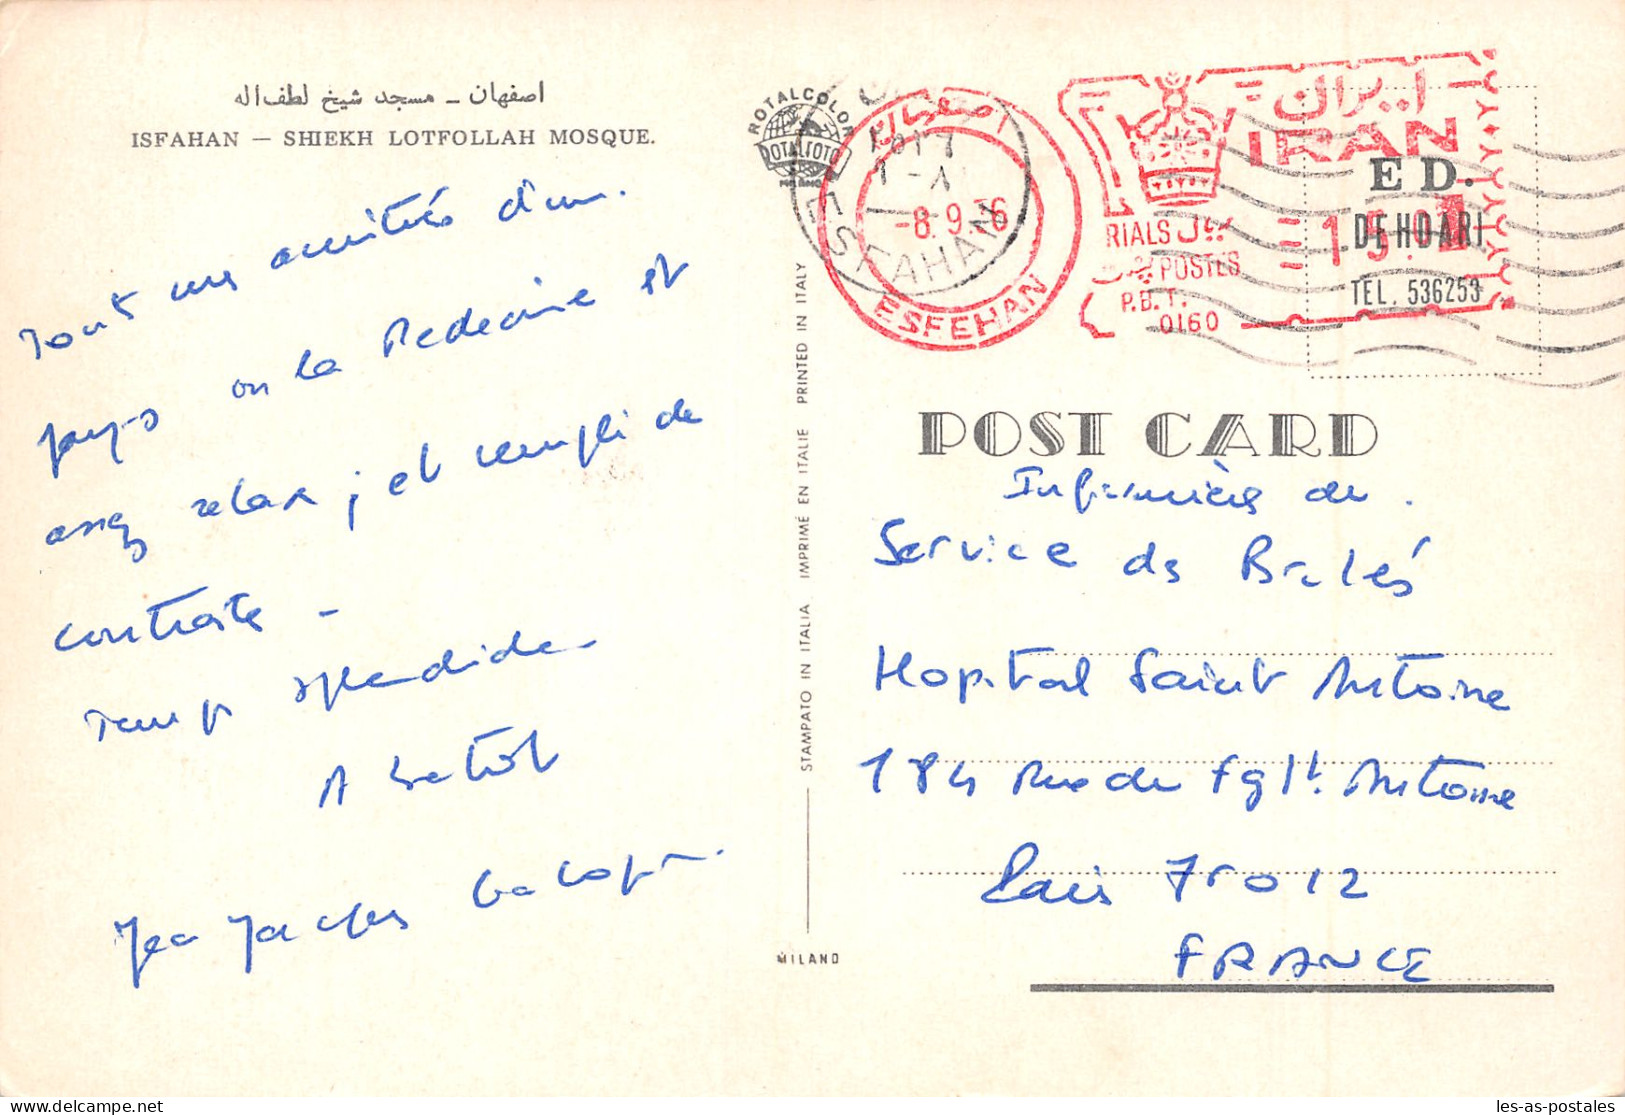 اصفهان ـ مسجد شیخ لطف‌اله
ISFAHAN — SHIEKH LOTFOLLAH MOSQUE.
Tout mes amitiés d'un
pays où la Médecine est
assez relax ; et rempli de
contraste -
Temps splendide
A bientôt
Jean Jacques
ROTALCOLOR
ROTALFOTO
MILANO
STAMPATO IN ITALIA IMPRIMÉ EN ITALIE PRINTED IN ITALY
MILANO
اصفهان
-8. 9. 36
ESFEHAN
ESFAHAN
ایران
IRAN
RIALS ریال
پست POSTES
P.B.T.
0160
=15.0
ED.
DEHOARI
TEL. 536253
POST CARD
Infirmière du
Service de Brulés
Hopital Saint Antoine
184 Rue du Fg St. Antoine
Paris 75012
FRANCE
les-as-postales